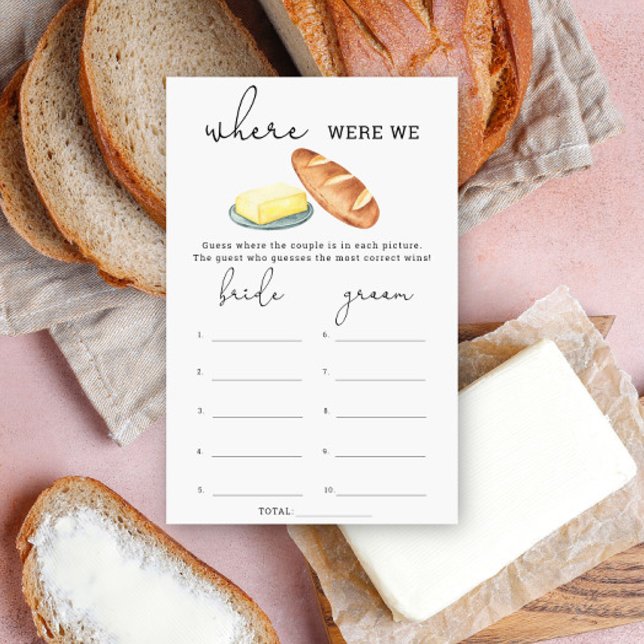 where WERE WE
Guess where the couple is in each picture.
The guest who guesses the most correct wins!
bride groom
1. 6.
2. 7.
3. 8.
4. 9.
5. 10.
TOTAL: